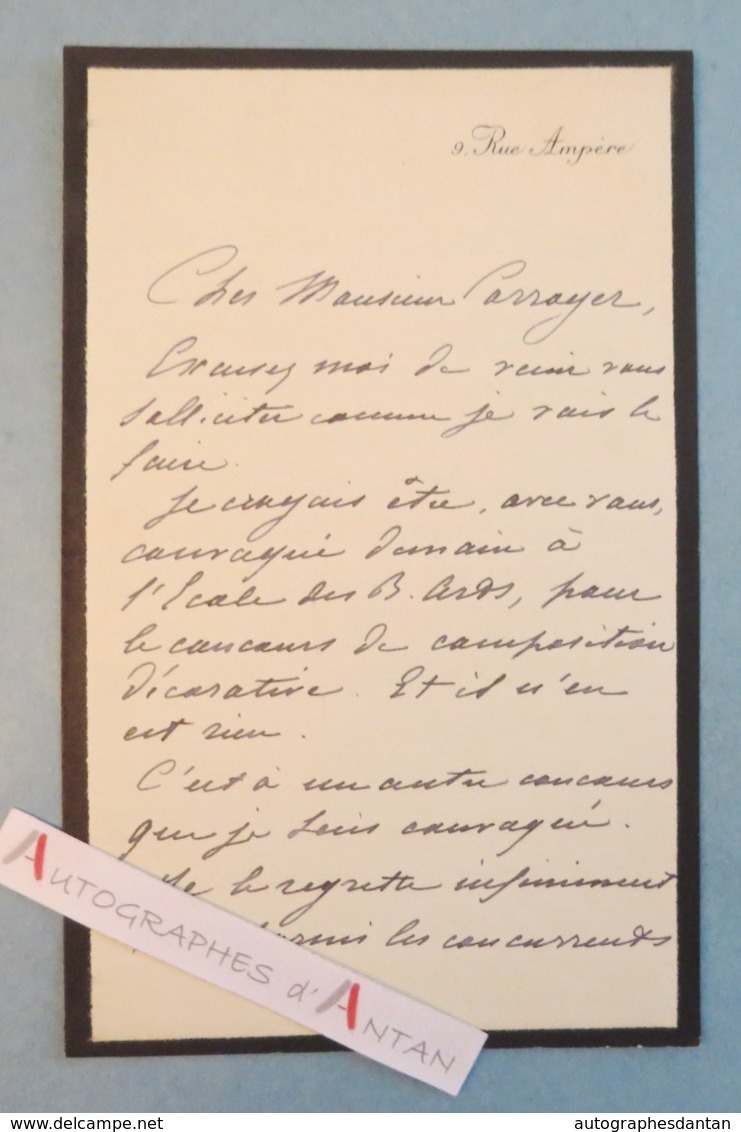 9. Rue Ampère
Cher Monsieur Corroyer,
Excusez moi de venir vous
solliciter comme je vais le
faire.
Je croyais être, avec vous,
convoqué demain à
l'Ecole des B. Arts, pour
le concours de composition
décorative. Et il n'en
est rien.
C'est à un autre concours
que je suis convoqué.
Je le regrette infiniment
parmi les concurrents
AUTOGRAPHES d'ANTAN
www.delcampe.net
autographesdantan